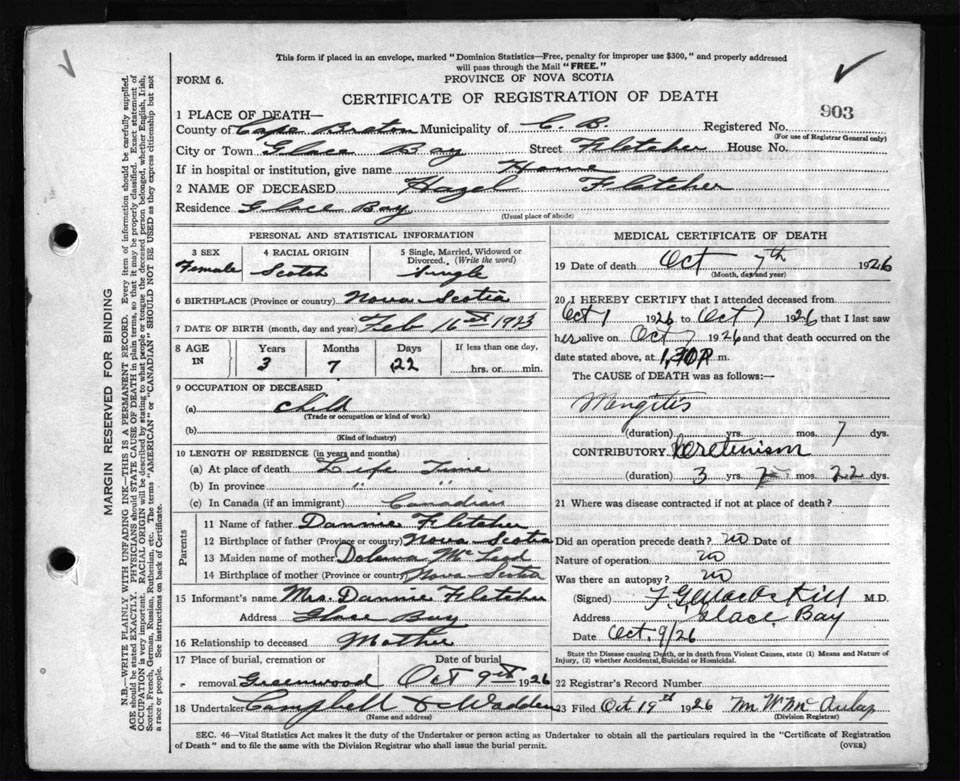 This form if placed in an envelope, marked "Dominion Statistics—Free, penalty for improper use $300," and properly addressed
will pass through the Mail "FREE."
FORM 6.
PROVINCE OF NOVA SCOTIA
CERTIFICATE OF REGISTRATION OF DEATH
903
1 PLACE OF DEATH—
County of Cape Breton Municipality of C. B. Registered No.
(For use of Registrar General only)
City or Town Glace Bay Street Fletcher House No.
If in hospital or institution, give name Home
2 NAME OF DECEASED Hazel Fletcher
Residence Glace Bay
(Usual place of abode)
PERSONAL AND STATISTICAL INFORMATION
3 SEX 4 RACIAL ORIGIN 5 Single, Married, Widowed or Divorced. (Write the word)
Female Scotch Single
6 BIRTHPLACE (Province or country) Nova Scotia
7 DATE OF BIRTH (month, day and year) Feb 16th 1923
8 AGE IN Years Months Days If less than one day,
3 7 22 hrs. or min.
9 OCCUPATION OF DECEASED
(a) Child
(Trade or occupation or kind of work)
(b)
(Kind of industry)
10 LENGTH OF RESIDENCE (in years and months)
(a) At place of death Life Time
(b) In province " "
(c) In Canada (if an immigrant) Canadian
Parents
11 Name of father Dannie Fletcher
12 Birthplace of father (Province or country) Nova Scotia
13 Maiden name of mother Dolena McLeod
14 Birthplace of mother (Province or country) Nova Scotia
15 Informant's name Mrs. Dannie Fletcher
Address Glace Bay
16 Relationship to deceased Mother
17 Place of burial, cremation or Date of burial
removal Greenwood Oct 9th 1926
18 Undertaker Campbell & Wadden
(Name and address)
MEDICAL CERTIFICATE OF DEATH
19 Date of death Oct 7th 1926
(Month, day and year)
20 I HEREBY CERTIFY that I attended deceased from
Oct 1 1926 to Oct 7 1926 that I last saw
her alive on Oct 7 1926 and that death occurred on the
date stated above, at 1.30 P m.
The CAUSE of DEATH was as follows:—
Mengitis
(duration) yrs. mos. 7 dys.
CONTRIBUTORY Cretinism
(duration) 3 yrs 7 mos 22 dys.
21 Where was disease contracted if not at place of death?
Did an operation precede death? no Date of
Nature of operation no
Was there an autopsy? no
(Signed) M.D.
Address Glace Bay
Date Oct. 9/26
State the Disease causing Death, or in death from Violent Causes, state (1) Means and Nature of
Injury, (2) whether Accidental, Suicidal or Homicidal.
22 Registrar's Record Number
23 Filed Oct 19th 1926
(Division Registrar)
SEC. 46—Vital Statistics Act makes it the duty of the Undertaker or person acting as Undertaker to obtain all the particulars required in the "Certificate of Registration
of Death" and to file the same with the Division Registrar who shall issue the burial permit. (OVER)
MARGIN RESERVED FOR BINDING
N.B.—WRITE PLAINLY WITH UNFADING INK—THIS IS A PERMANENT RECORD. Every item of information should be carefully supplied.
AGE should be stated EXACTLY. PHYSICIANS should STATE CAUSE OF DEATH in plain terms, so that it may be properly classified. Exact statement of
OCCUPATION is very important. RACIAL ORIGIN will be described by stating to what people or tongue the deceased person belonged, whether English, Irish,
Scotch, French, German, Russian, Ruthenian, etc. The terms "AMERICAN" or "CANADIAN" SHOULD NOT BE USED as they express citizenship but not
a race or people. See instructions on back of Certificate.